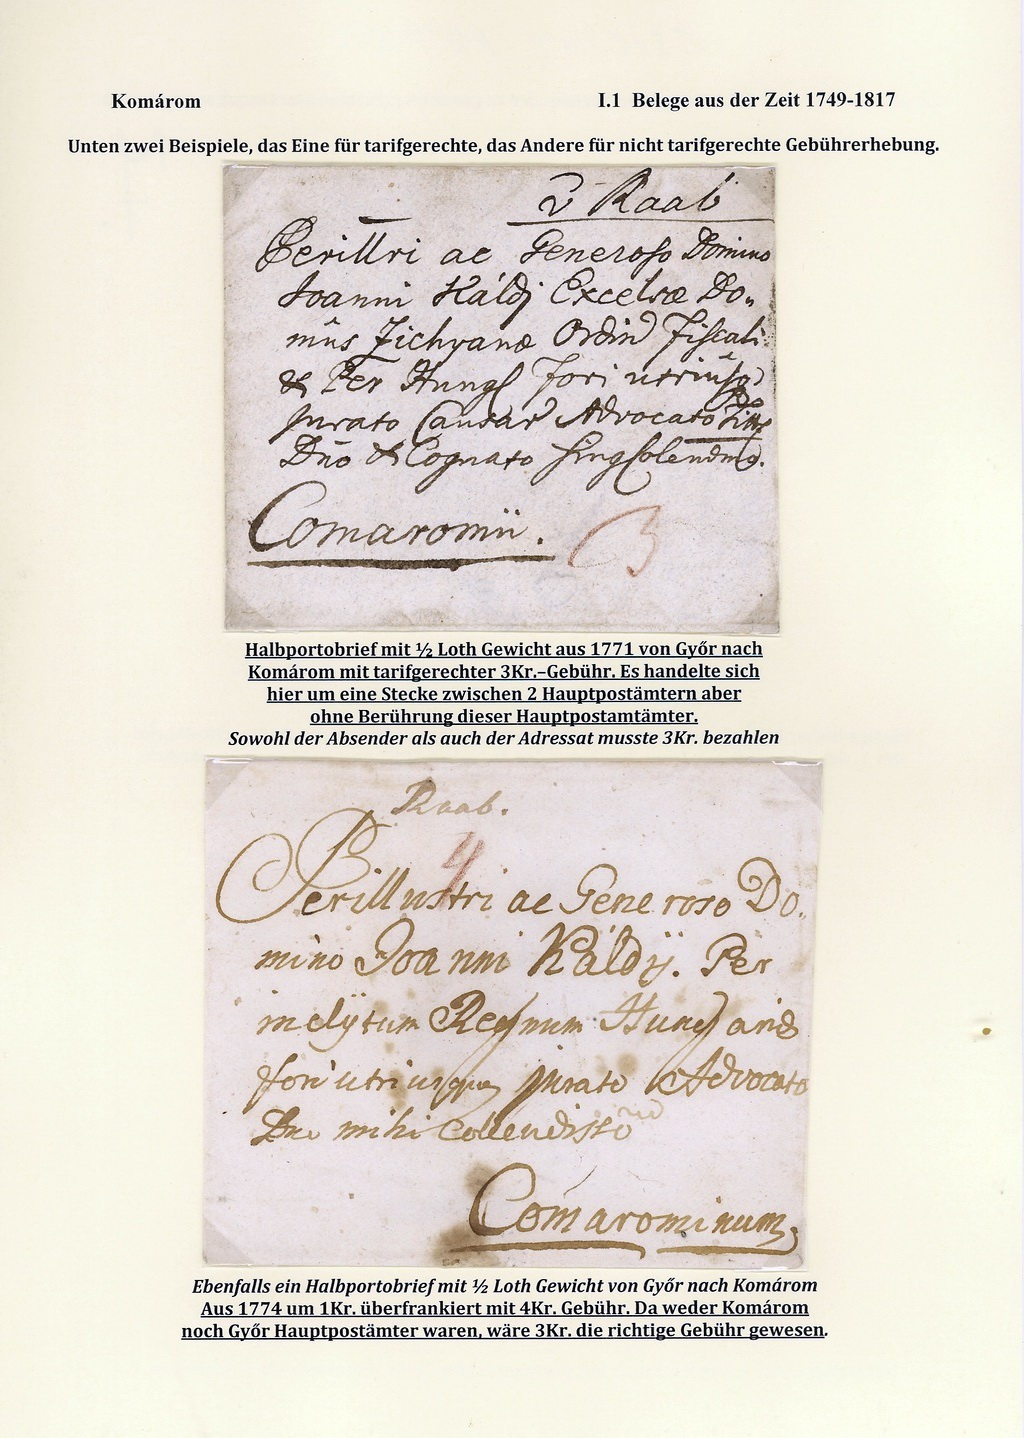 Komárom I.1 Belege aus der Zeit 1749-1817
Unten zwei Beispiele, das Eine für tarifgerechte, das Andere für nicht tarifgerechte Gebührerhebung.
Raab
Perillri ac Generoso Domino
Joanni Káldj Excelsæ Do„
mûs Zichyanæ Ordin Fiscali
& Per Hung Fori utriusq
Jurato Causar Advocato
Dno & Cognato
Comaromii.
3
Halbportobrief mit ½ Loth Gewicht aus 1771 von Győr nach
Komárom mit tarifgerechter 3Kr.–Gebühr. Es handelte sich
hier um eine Stecke zwischen 2 Hauptpostämtern aber
ohne Berührung dieser Hauptpostamtämter.
Sowohl der Absender als auch der Adressat musste 3Kr. bezahlen
Raab.
4
Perillustri ac Generoso Do„
mino Joanni Káldÿ. Per
inclÿtum Regnum Hungariæ
fori utriusque jurato Advocato
Dno mihi Collendissô
Comarominum
Ebenfalls ein Halbportobrief mit ½ Loth Gewicht von Győr nach Komárom
Aus 1774 um 1Kr. überfrankiert mit 4Kr. Gebühr. Da weder Komárom
noch Győr Hauptpostämter waren, wäre 3Kr. die richtige Gebühr gewesen.